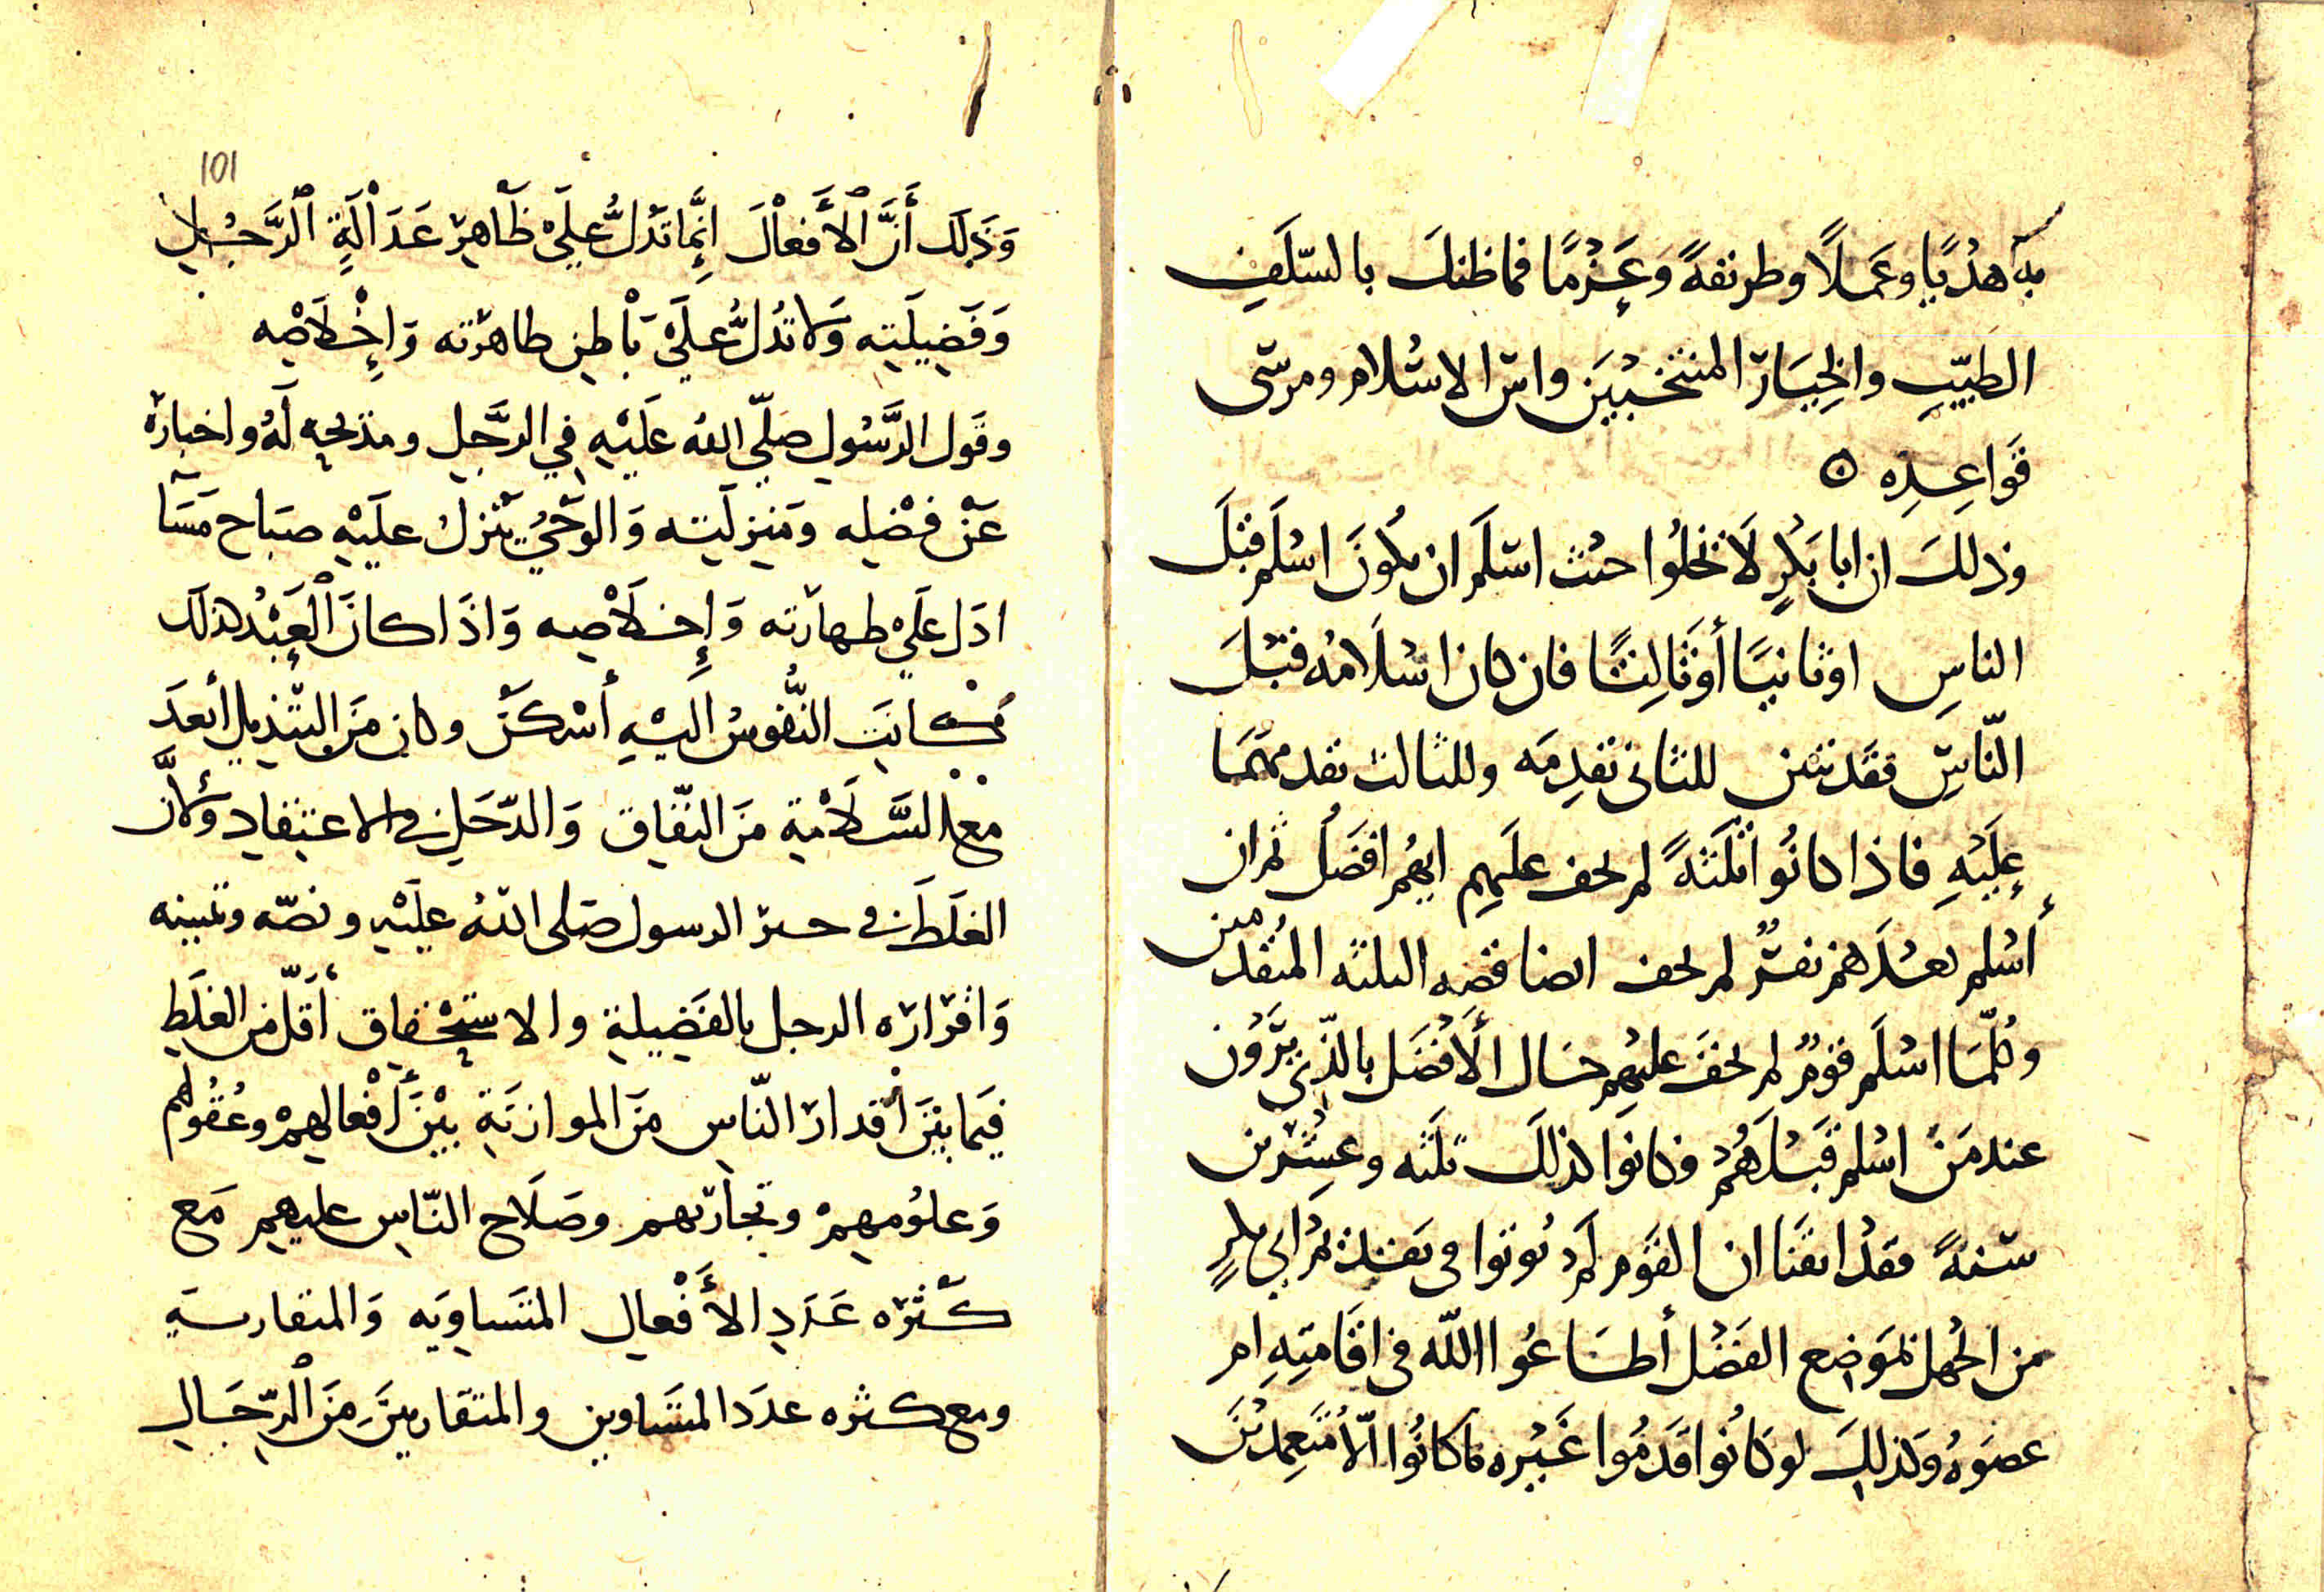 به هدْيًا وعَملًا وطريقةً وَعَزْمًا فما ظنك بالسّلَفِ
الطيّبِ والخِيَار المنتخبينَ واسّ الاسْلام ومرسّى
قَواعِدِه ٥
وذلكَ ان ابا بَكرٍ لَا يخلُوا حيث اسْلَم ان يكُونَ اسْلَم قبْلَ
الناسِ اوثانيًا أوثَالِثًا فان كان اسْلَامُه قبْلَ
النّاسِ فقَد تبين للثانى تقدمَه وللثالث تقدمهمَا
عليْهِ فاذا كانُوا ثلثَةً لم يخف عليهِم ايهُم افضَلُ ثم ان
أسْلم بعدَهم نفرٌ لم يخف ايضا قصه الثلثه المتقدمين
وكلّمَا اسْلَم قومٌ لم يخفَ عليهِم حَال الأفْضَل بالذِى يرَوْن
عند مَنْ اسْلم قَبْلَهُمْ وكانوا كذلكَ ثلثَه وعِشْرين
سَنةً فقدْ ايقنَا ان القَوم لَم يُؤتوا فى تقديم ابي بكرٍ
من الجَهل بمَوضِع الفَضْل أطَاعُوا الله فى اقَامَتِهِ ام
عصَوهُ وكذلِكَ لو كَانُوا قَدمُوا غَيْره ما كانُوا الّا مُتَعمِدينَ
101
وَذَلِكَ أَنَّ ٱلأَفعْالَ إِنَّمَا تَدُلُّ عَلَىْ ظَاهِرِ عَدَاْلَةِ ٱلرَّجُلِ
وَفَضِيلَتِه وَلا تَدُلُّ عَلَىْ بَاْطِنِ طاهرَته وَإِخْلَاصِه
وقَول الرَّسُول صَلّى الله عَلَيْهِ فِي الرَّجُلِ ومَدْحِهِ لَهُ واخبارَه
عَنْ فضْلِه ومَنزِلَتِه وَالوَحْيُ يَنْزِلُ عليْهِ صبَاح مَسَآ
ادَل عَلَىْ طهارَته وَإِخلَاْصِه وَاذَا كانَ ٱلْعَبْدُ كذلك
كانَتِ النُّفُوسُ اليْهِ أسْكَنَ وكان مِنَ التبْدِيل أبْعدَ
مع السَّلَامَةِ مِنَ النّفَاق وَالدّخَلِ فى الاعتِقادِ ولأنَّ
الغلَطَ فى خبر الرسول صَلى اللهُ عليْهِ ونصّه وتبيينه
وَاقْرَارَه الرجل بالفَضِيلةِ والاستِحْقاق أقَلّ مِن الغلَطِ
فيمَا بيْنَ أقدارِ النّاسِ مِنَ الموازنَةِ بيْنَ أَفْعالِهِمْ وعُقُولِهم
وَعلُومِهِمْ وتجارَبهم وصَلَاح النّاسِ عليهِم مَع
كَثْرَه عَدَدِ الأَفْعالِ المتسَاوِيَه وَالمتقاربَه
ومع كثره عدَد المتسَاوين والمتقاربينَ مِنَ ٱلرّجَالِ